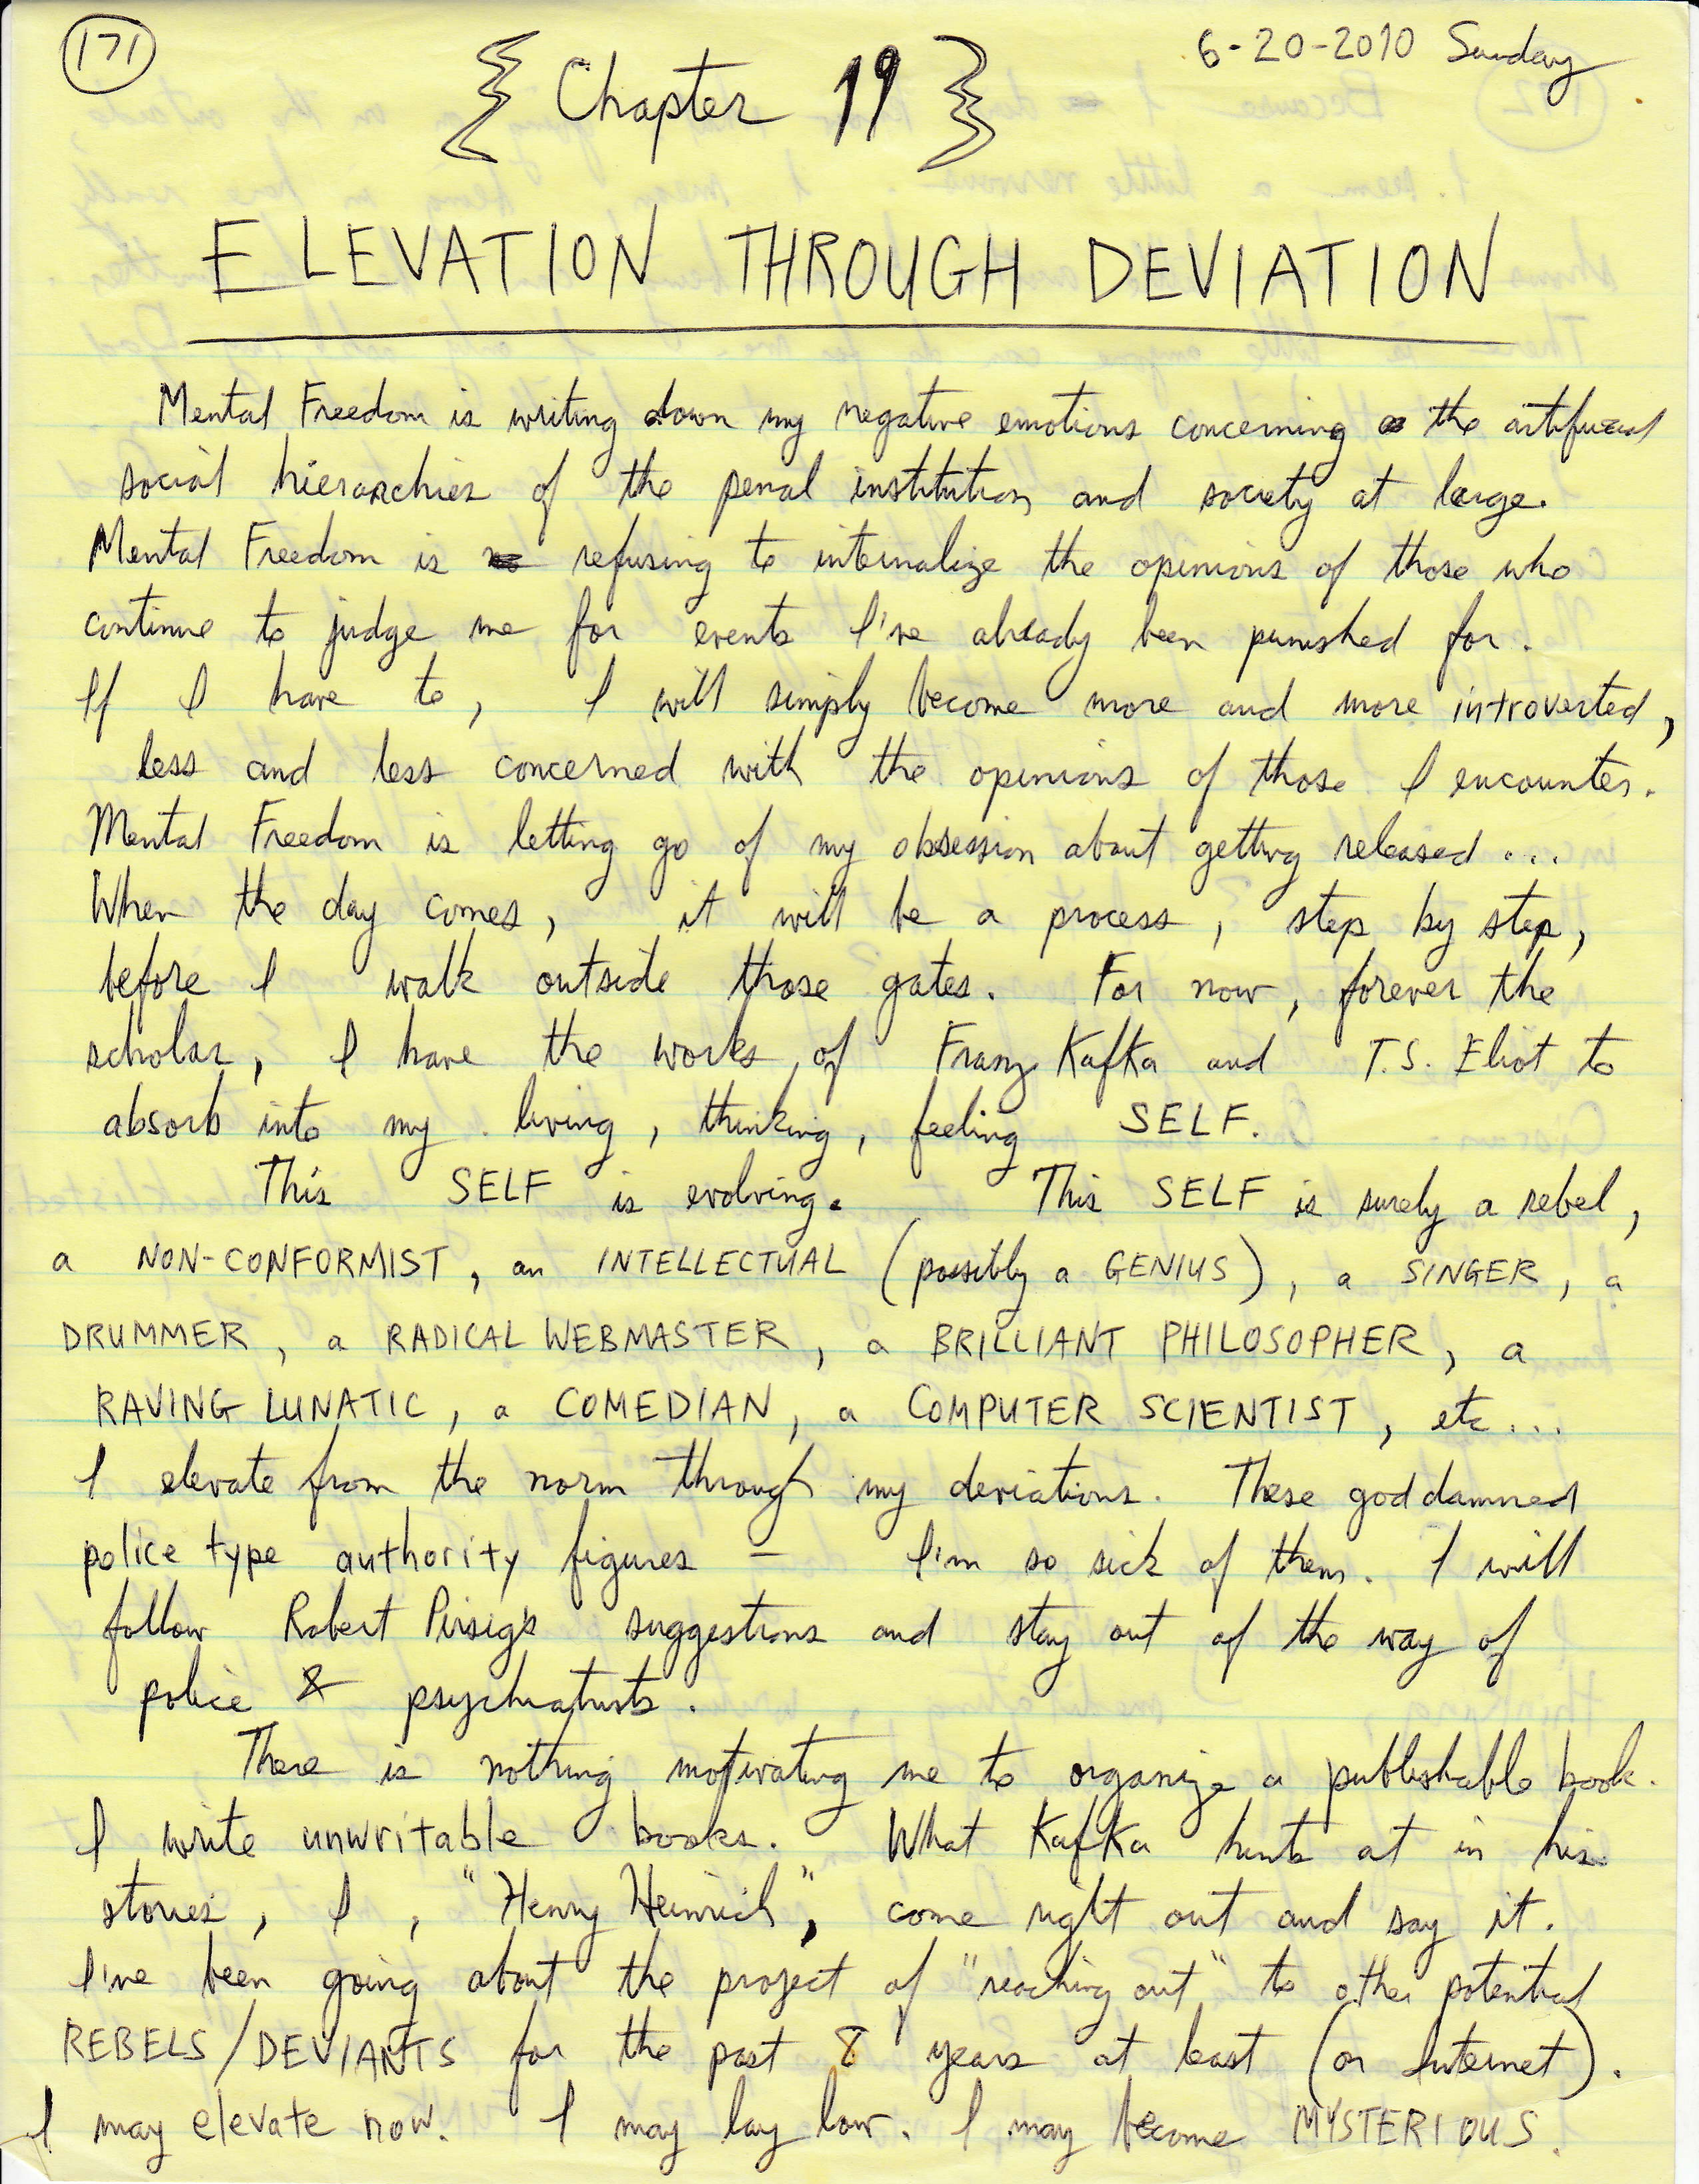 171
6-20-2010 Sunday
{ Chapter 19 }
ELEVATION THROUGH DEVIATION
Mental Freedom is writing down my negative emotions concerning the artificial
social hierarchies of the penal institution and society at large.
Mental Freedom is refusing to internalize the opinions of those who
continue to judge me for events I've already been punished for.
If I have to, I will simply become more and more introverted,
less and less concerned with the opinions of those I encounter.
Mental Freedom is letting go of my obsession about getting released ...
When the day comes, it will be a process, step by step,
before I walk outside those gates. For now, forever the
scholar, I have the works of Franz Kafka and T.S. Eliot to
absorb into my living, thinking, feeling SELF.
This SELF is evolving. This SELF is surely a rebel,
a NON-CONFORMIST, an INTELLECTUAL (possibly a GENIUS), a SINGER, a
DRUMMER, a RADICAL WEBMASTER, a BRILLIANT PHILOSOPHER, a
RAVING LUNATIC, a COMEDIAN, a COMPUTER SCIENTIST, etc...
I elevate from the norm through my deviations. These god damned
police type authority figures - I'm so sick of them. I will
follow Robert Pirsig's suggestions and stay out of the way of
police & psychiatrists.
There is nothing motivating me to organize a publishable book.
I write unwritable books. What Kafka hints at in his
stories, I, "Henry Heinrich", come right out and say it.
I've been going about the project of "reaching out" to other potential
REBELS/DEVIANTS for the past 8 years at least (on Internet).
I may elevate now. I may lay low. I may become MYSTERIOUS.